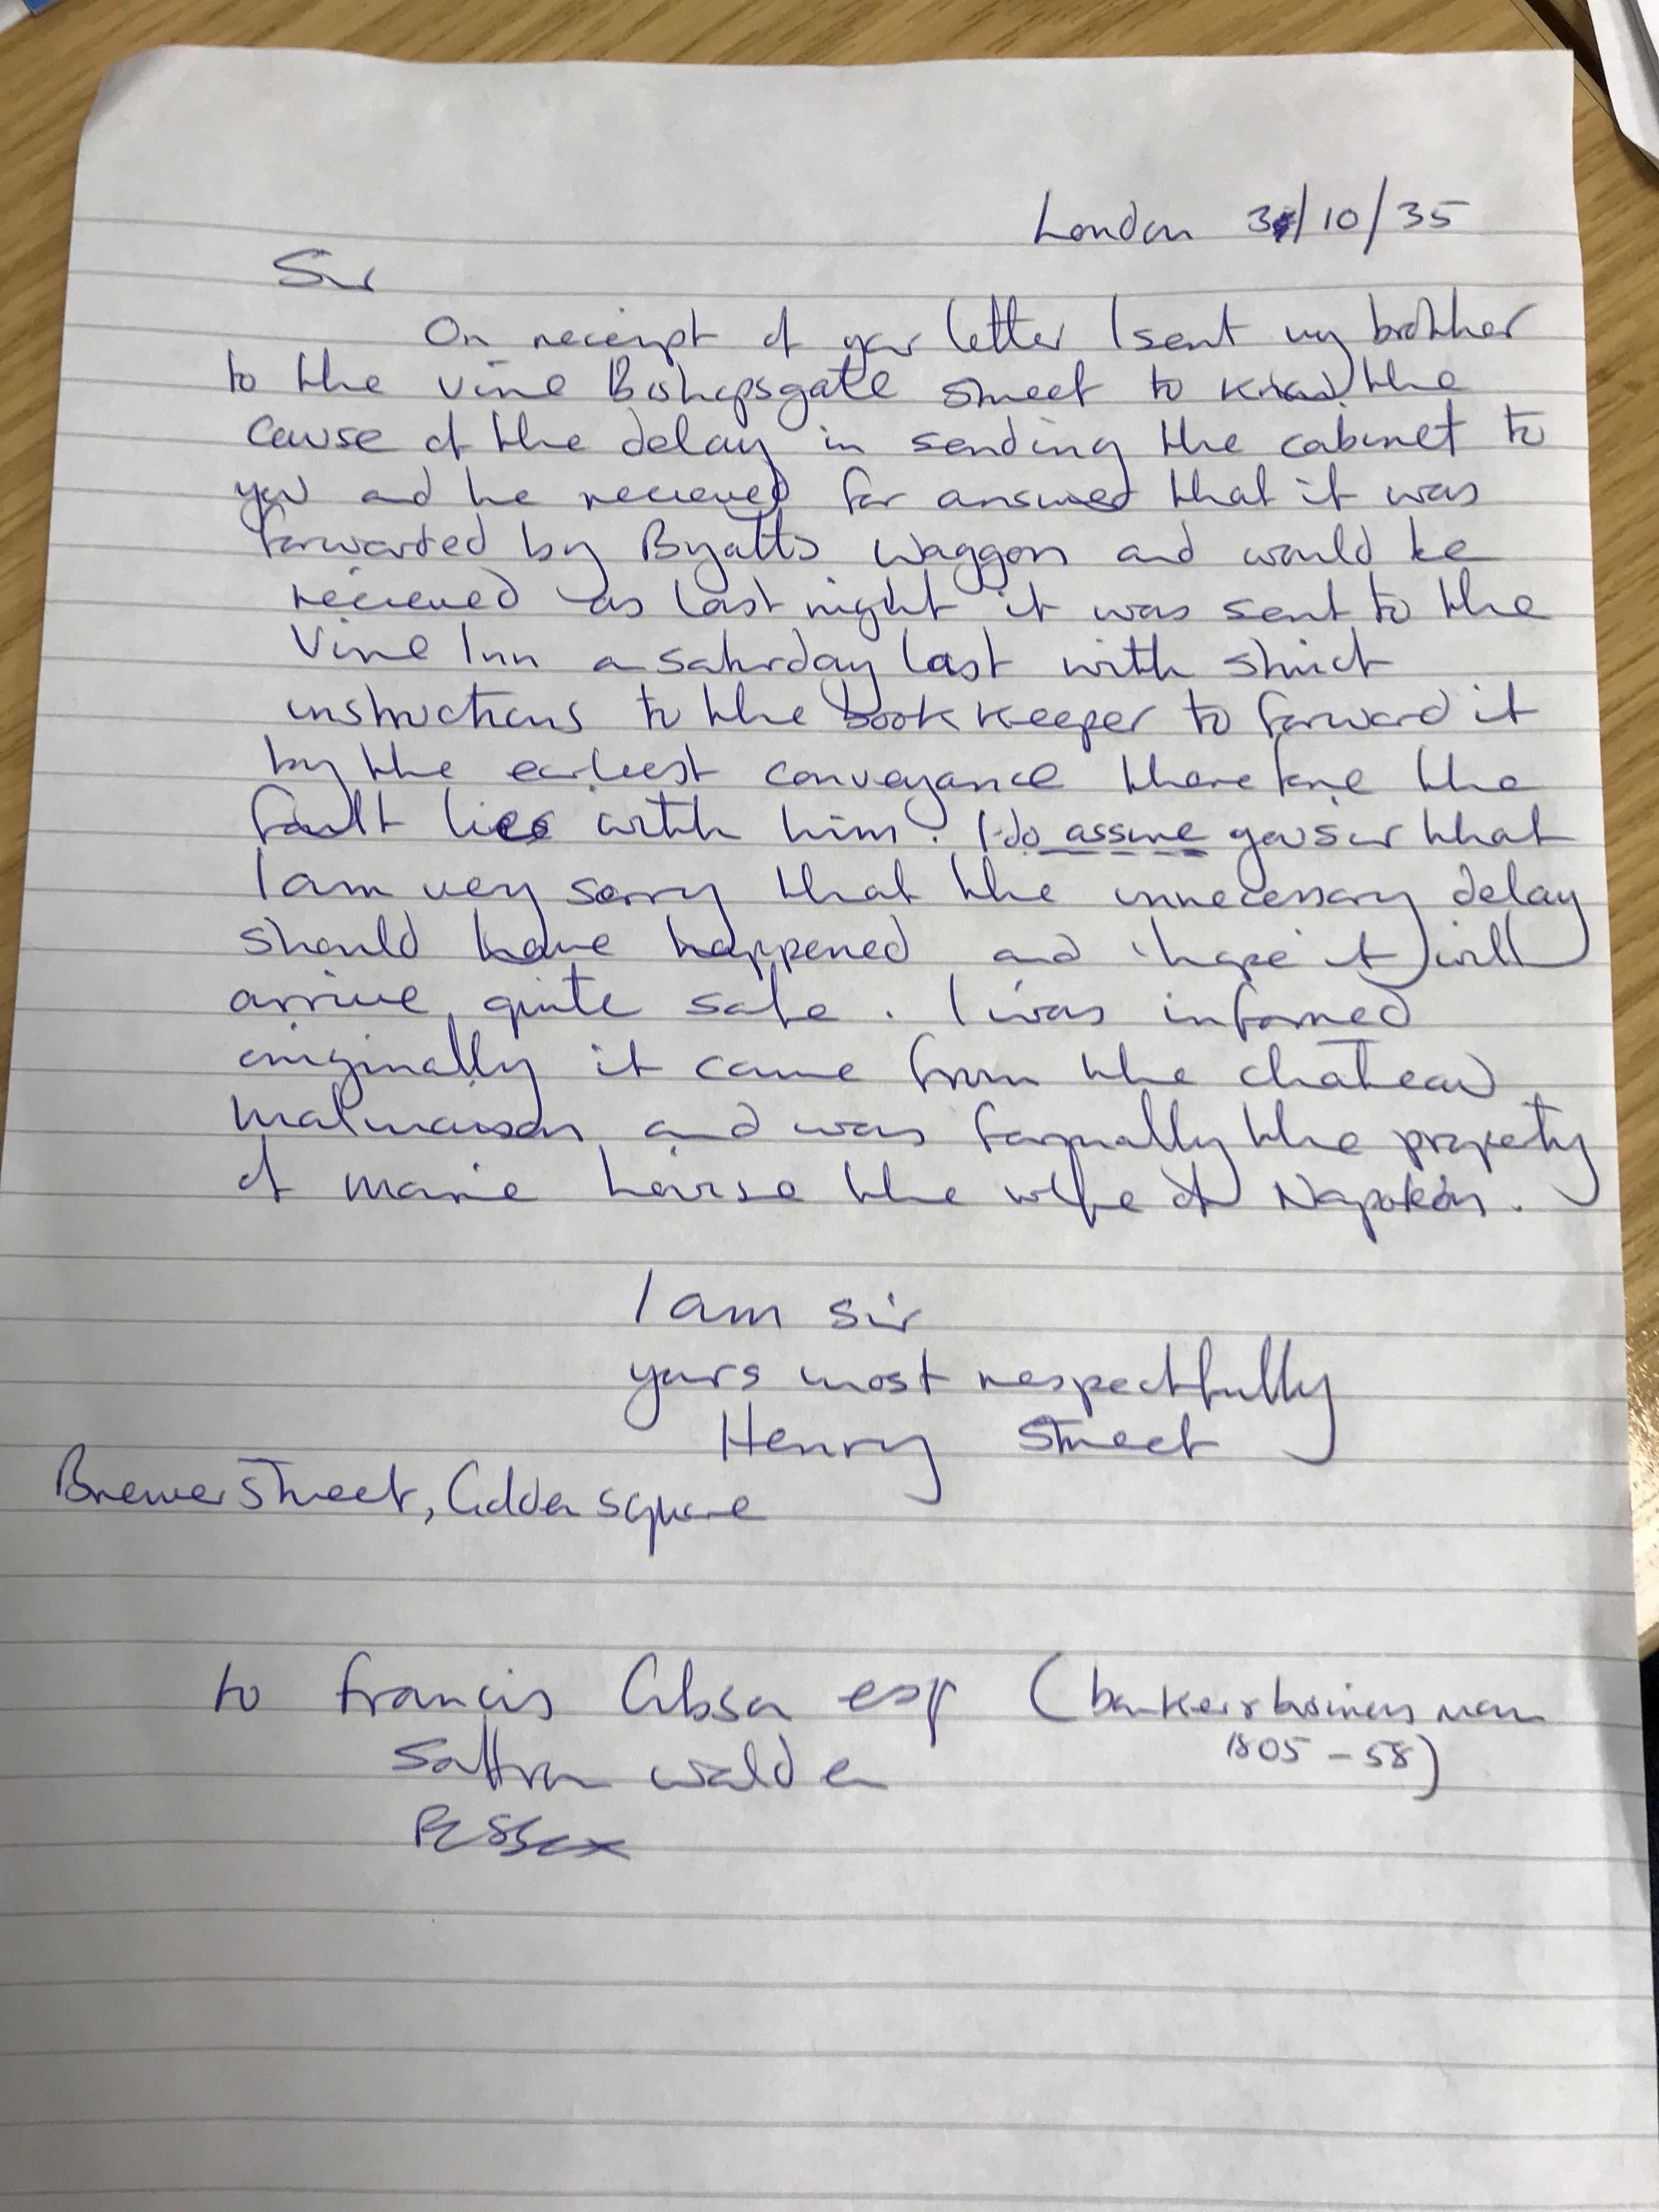 London 31/10/35
Sir
On receipt of your letter I sent my brother
to the vine Bishopsgate Street to know the
cause of the delay in sending the cabinet to
you and he recieved for answer that it was
forwarded by Byatts waggon and would be
recieved as last night it was sent to the
Vine Inn a saturday last with strict
instructions to the book keeper to forward it
by the earliest conveyance therefore the
fault lies with him. I do assure you sir that
I am very sorry that the unnecessary delay
should have happened and I hope it will
arrive quite safe. I was informed
originally it came from the chateau
Malmaison and was formally the property
of Marie Louise the wife of Napoleon.
I am sir
yours most respectfully
Henry Street
Brewer Street, Golden square
to Francis Gibson esq (banker & business man
1805 - 58)
Saffron walden
Essex